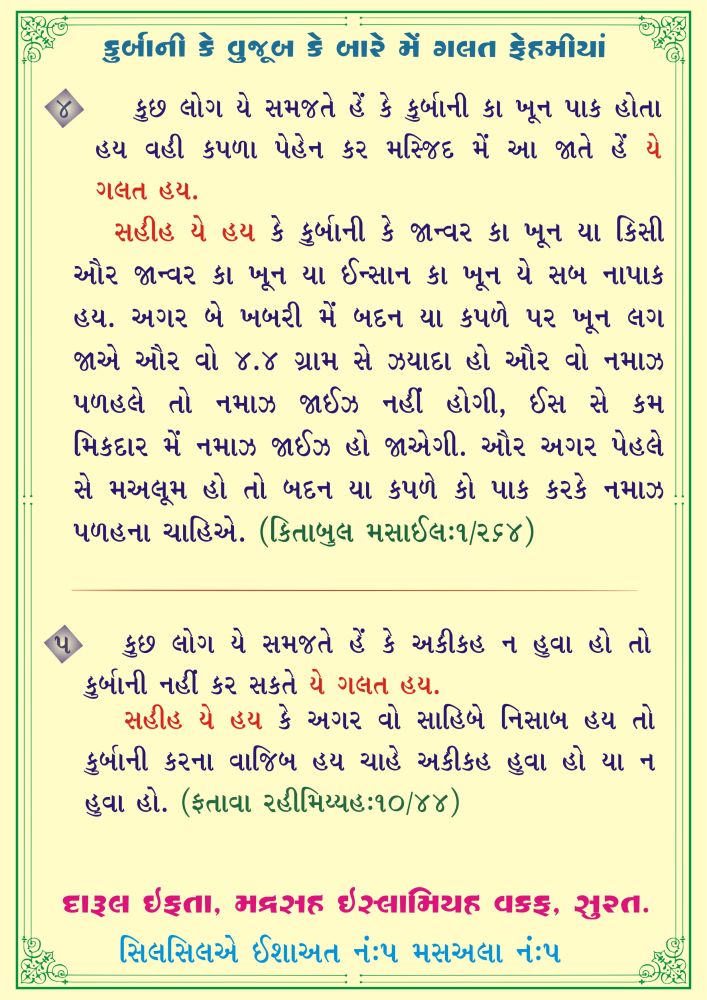 કુર્બાની કે વુજૂબ કે બારે મેં ગલત ફેહમીયાં
૪ કુછ લોગ યે સમજતે હેં કે કુર્બાની કા ખૂન પાક હોતા
હય વહી કપળા પેહેન કર મસ્જિદ મેં આ જાતે હેં યે
ગલત હય.
સહીહ યે હય કે કુર્બાની કે જાન્વર કા ખૂન યા કિસી
ઔર જાન્વર કા ખૂન યા ઈન્સાન કા ખૂન યે સબ નાપાક
હય. અગર બે ખબરી મેં બદન યા કપળે પર ખૂન લગ
જાએ ઔર વો ૪.૪ ગ્રામ સે ઝયાદા હો ઔર વો નમાઝ
પળહલે તો નમાઝ જાઈઝ નહીં હોગી, ઈસ સે કમ
મિકદાર મેં નમાઝ જાઈઝ હો જાએગી. ઔર અગર પેહલે
સે મઅલૂમ હો તો બદન યા કપળે કો પાક કરકે નમાઝ
પળહના ચાહિએ. (કિતાબુલ મસાઈલ:૧/૨૬૪)
૫ કુછ લોગ યે સમજતે હેં કે અકીકહ ન હુવા હો તો
કુર્બાની નહીં કર સકતે યે ગલત હય.
સહીહ યે હય કે અગર વો સાહિબે નિસાબ હય તો
કુર્બાની કરના વાજિબ હય ચાહે અકીકહ હુવા હો યા ન
હુવા હો. (ફતાવા રહીમિય્યહ:૧૦/૪૪)
દારૂલ ઇફતા, મદ્રસહ ઇસ્લામિયહ વકફ, સુરત.
સિલસિલએ ઈશાઅત નં:૫ મસઅલા નં:૫